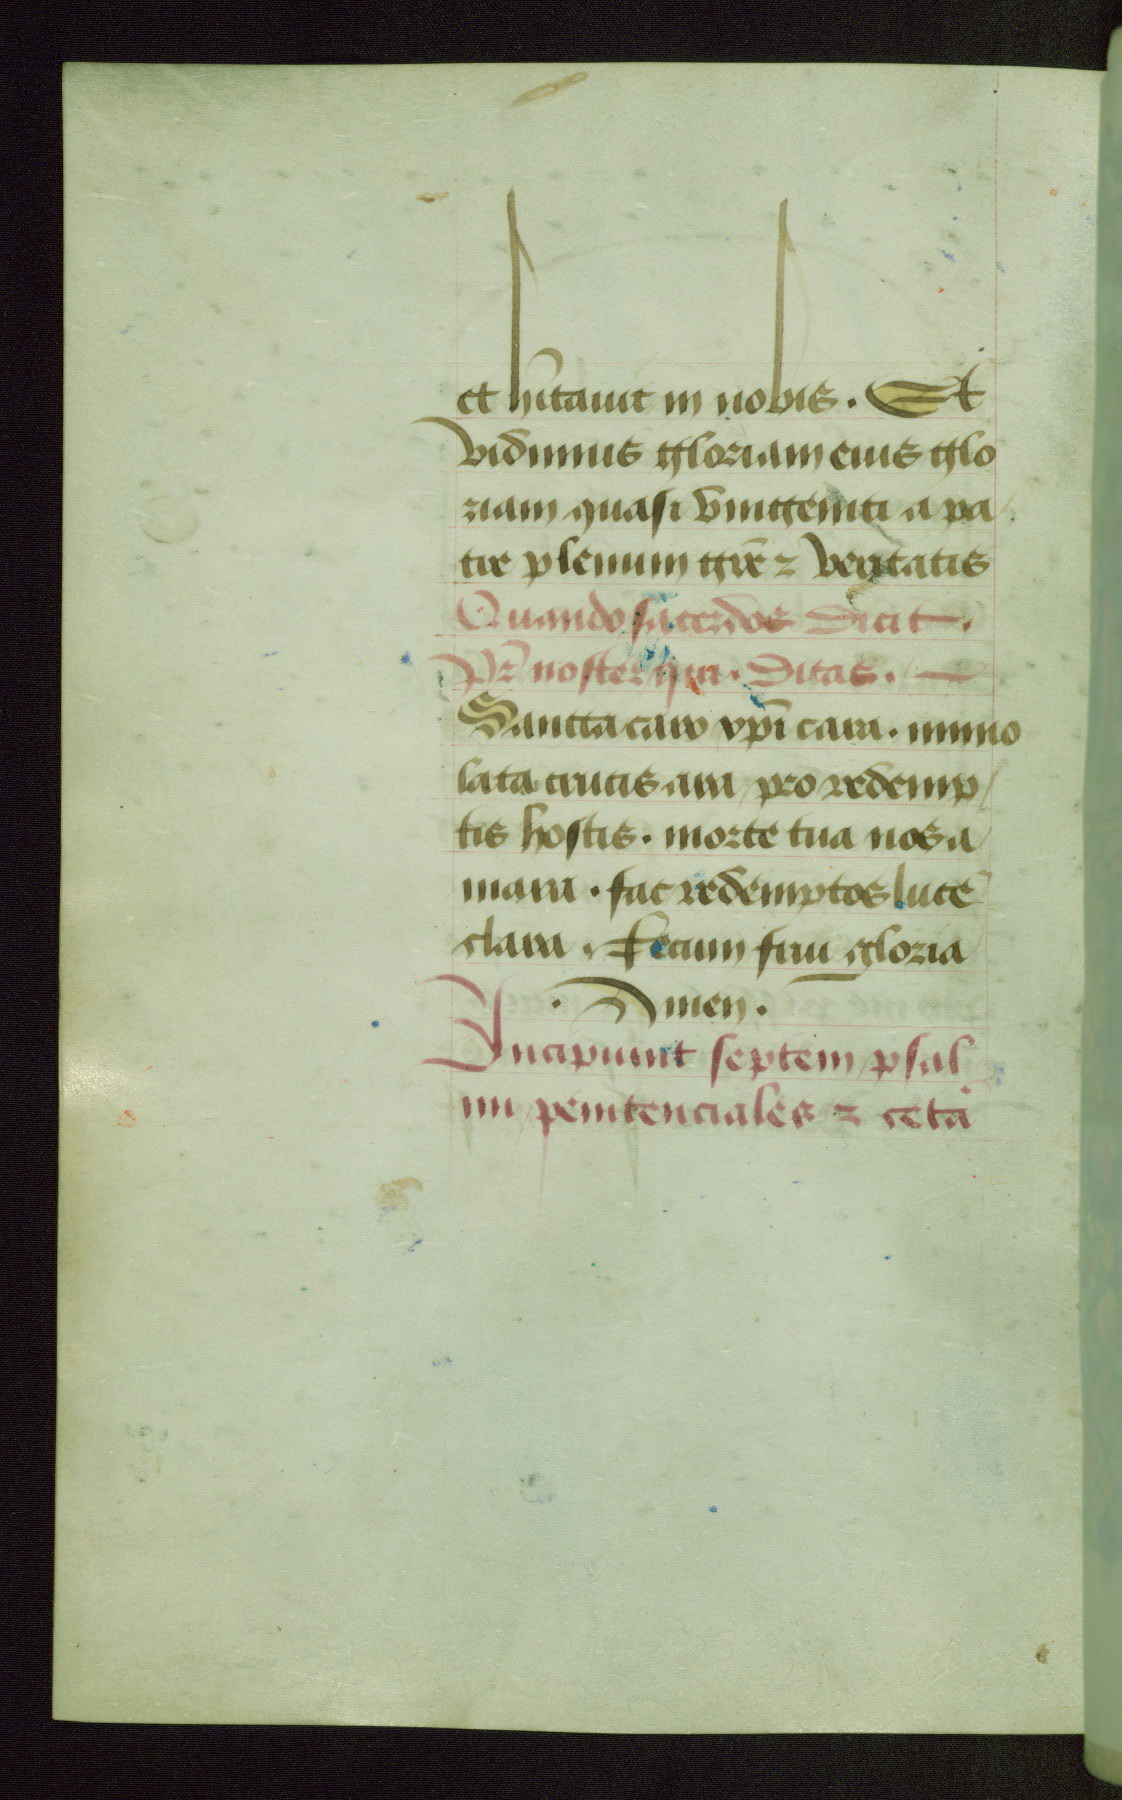 et hītauit in nobis. Et
vidimus gloriam eius glo
riam quasi vnigeniti a pa
tre plenum grē ⁊ veritatis
Quando sacerdos dicit.
Pr̄ noster qui. Dicas.
Sancta caro xp̄i cara. immo
lata crucis ara pro redemp
tis hostis. morte tua nos a
mara. fac redemptos luce
clara. tecum frui gloria
. Amen.
Incipiunt septem psal
mi penitenciales ⁊ cetā